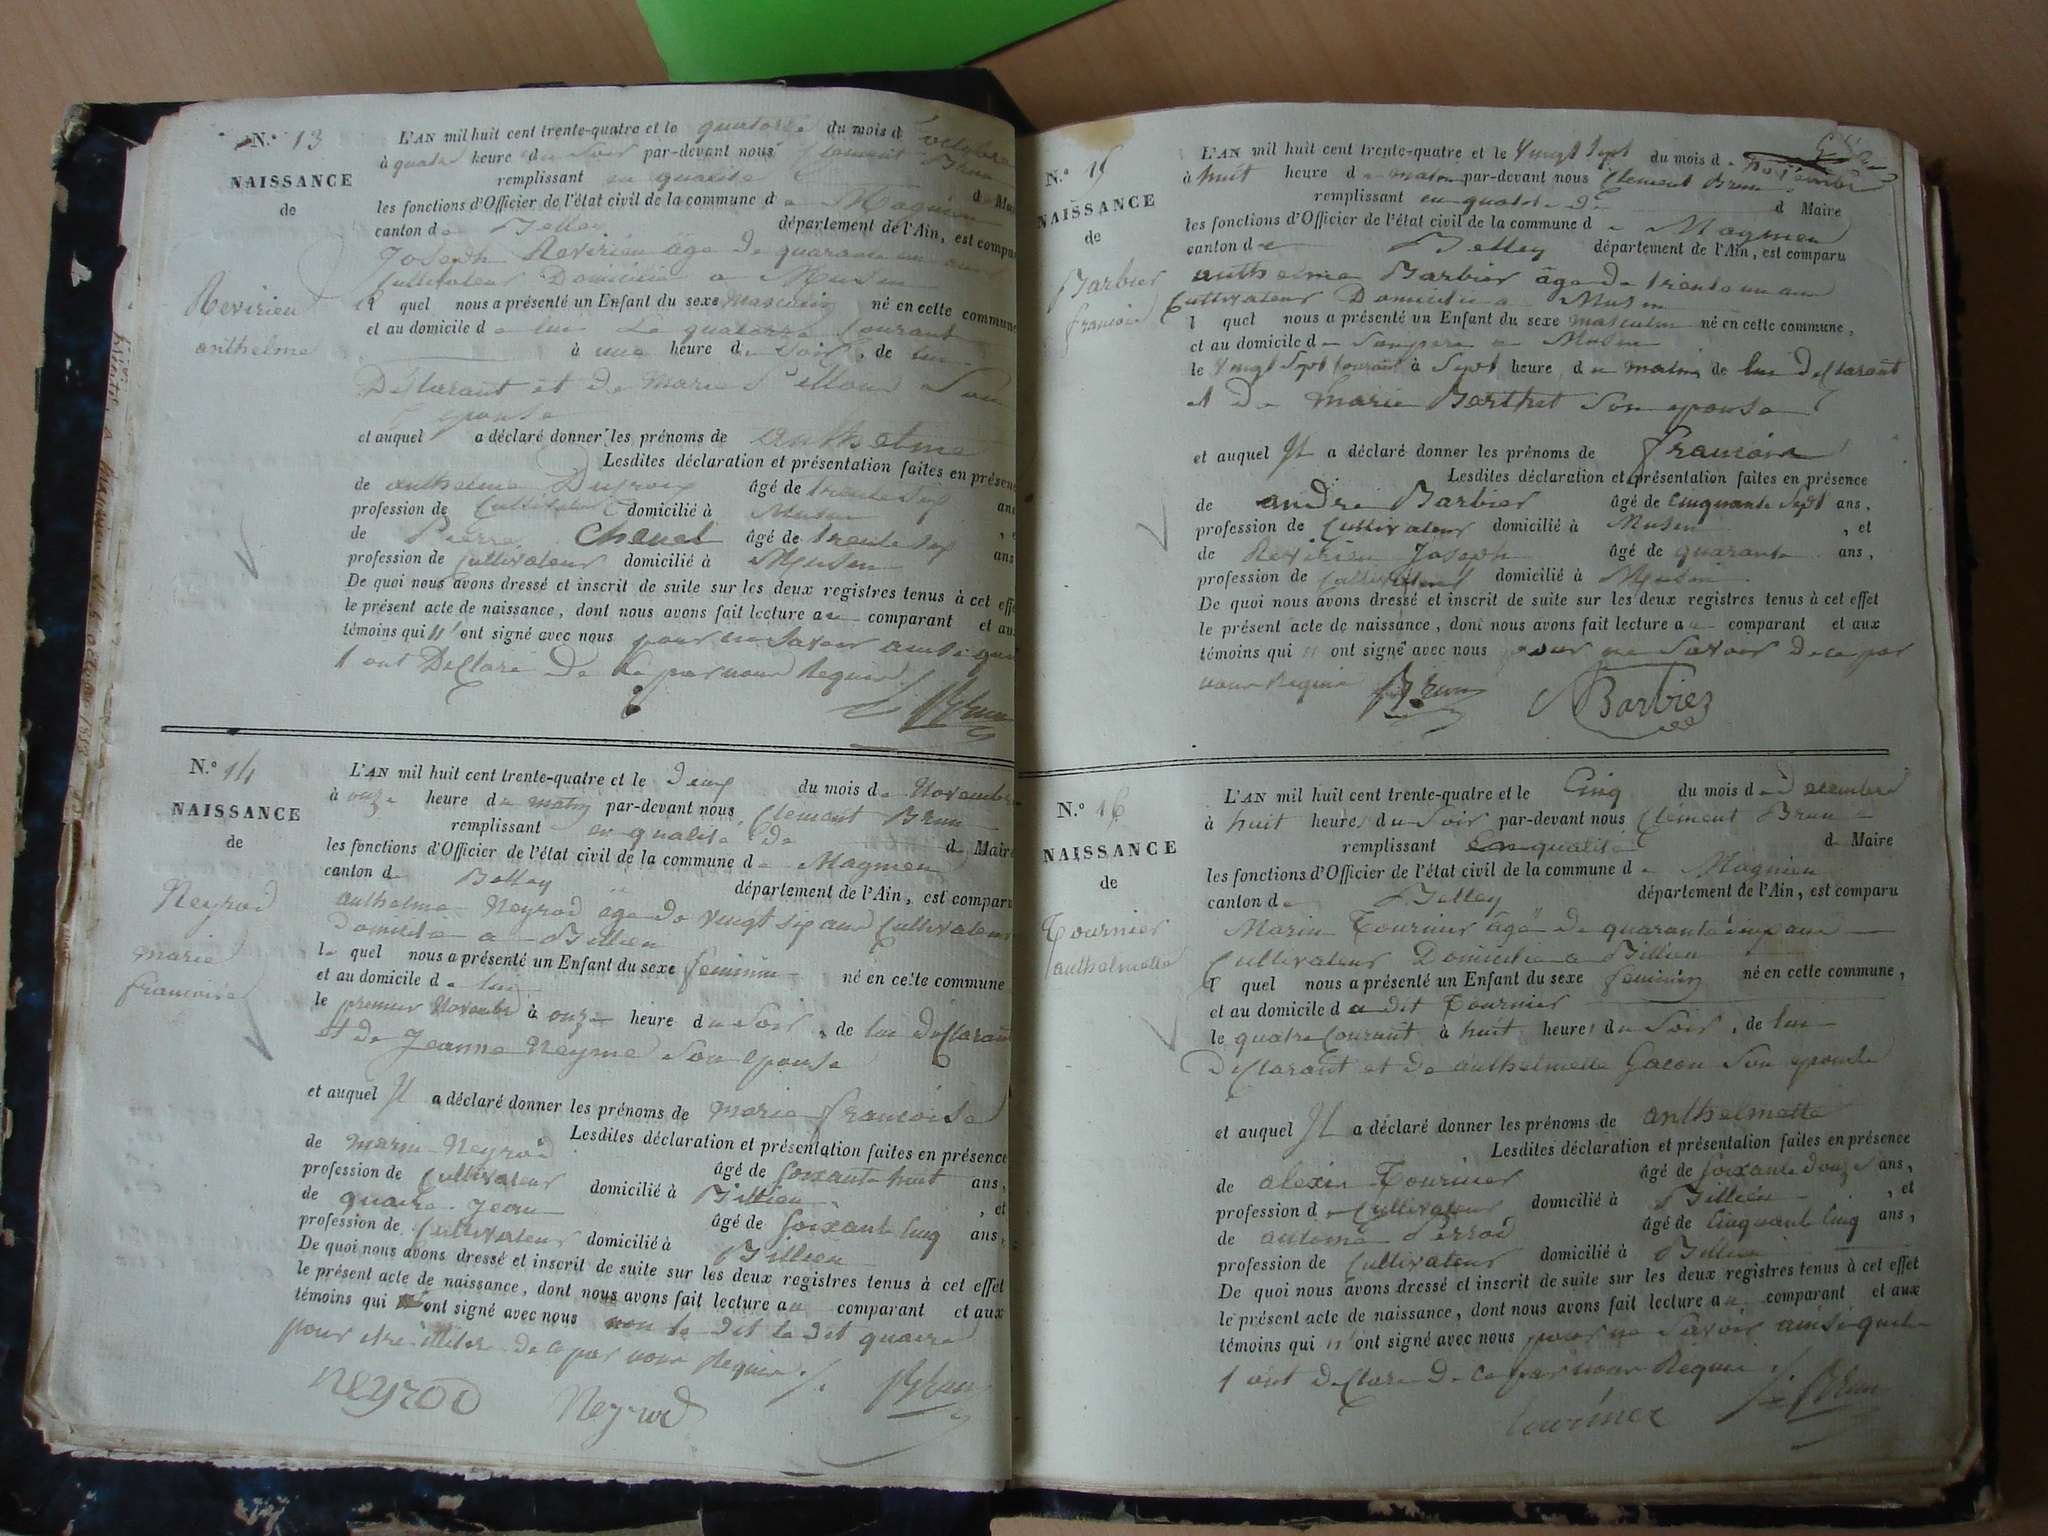 N.° 13
NAISSANCE
de
Revirieu
anthelme
L'AN mil huit cent trente-quatre et le quatorze du mois d octobre
à quatre heure du Soir par-devant nous Clement Brun
remplissant en qualité d Maire
les fonctions d'Officier de l'état civil de la commune de Magnieu
canton de Belley département de l'Ain, est comparu
Joseph Revirieu âgé de quarante un ans
Cultivateur Domicilié a Musin
l quel nous a présenté un Enfant du sexe masculin né en cette commune
et au domicile de lui Le quatorze Courant
à une heure du Soir, de lui
Déclarant et de Marie Son
epouse
et auquel a déclaré donner les prénoms de anthelme
Lesdites déclaration et présentation faites en présence
de anthelme Dufroix âgé de trente Sept ans
profession de Cultivateur domicilié à Musin
de Pierre Chenel âgé de trente six ans
profession de Cultivateur domicilié à Musin
De quoi nous avons dressé et inscrit de suite sur les deux registres tenus à cet effet
le présent acte de naissance, dont nous avons fait lecture au comparant et aux
témoins qui n'ont signé avec nous pour ne Savoir ainsi qu'i
l ont Déclaré De Ce par nous Requis
Brun
N.° 14
NAISSANCE
de
Neyrod
marie
francoise
L'AN mil huit cent trente-quatre et le deux du mois de Novembre
à onze heure du matin par-devant nous Clement Brun
remplissant en qualité de de Maire
les fonctions d'Officier de l'état civil de la commune de Magnieu
canton de Belley département de l'Ain, est comparu
anthelme Neyrod âgé de vingt six ans Cultivateur
Domicilié a Billieu
le quel nous a présenté un Enfant du sexe feminin né en cette commune
et au domicile de lui
le premier Novembre à onze heure du Soir, de lui Déclarant
et de Jeanne Neyme Son epouse
et auquel Il a déclaré donner les prénoms de marie francoise
Lesdites déclaration et présentation faites en présence
de marin Neyrod âgé de soixante huit ans,
profession de Cultivateur domicilié à Billieu, et
de quaire Jean âgé de soixante Cinq ans,
profession de Cultivateur domicilié à Billieu
De quoi nous avons dressé et inscrit de suite sur les deux registres tenus à cet effet
le présent acte de naissance, dont nous avons fait lecture au comparant et aux
témoins qui ont signé avec nous non le dit quaire
pour etre illitere de ce par nous Requis
neyrod Neyrod Brun
N.° 15
NAISSANCE
de
Barbier
francois
L'AN mil huit cent trente-quatre et le Vingt Sept du mois de novembre
à huit heure du matin par-devant nous Clement Brun
remplissant en qualité de d Maire
les fonctions d'Officier de l'état civil de la commune de Magnieu
canton de Belley département de l'Ain, est comparu
anthelme Barbier âgé de trente un ans
Cultivateur Domicilié a Musin
l quel nous a présenté un Enfant du sexe masculin né en cette commune,
et au domicile de Son pere a Musin
le Vingt Sept Courant à Sept heure du matin, de lui Déclarant
et de Marie Berthet Son epouse
et auquel Il a déclaré donner les prénoms de francois
Lesdites déclaration et présentation faites en présence
de andré Barbier âgé de Cinquante Sept ans,
profession de Cultivateur domicilié à Musin, et
de Revirieu Joseph âgé de quarante ans,
profession de Cultivateur domicilié à Musin
De quoi nous avons dressé et inscrit de suite sur les deux registres tenus à cet effet
le présent acte de naissance, dont nous avons fait lecture au comparant et aux
témoins qui n ont signé avec nous pour ne Savoir de ce par
nous Requis Brun Barbiez
N.° 16
NAISSANCE
de
Tournier
anthelmette
L'AN mil huit cent trente-quatre et le Cinq du mois de Decembre
à huit heures du Soir par-devant nous Clément Brun
remplissant En qualité de Maire
les fonctions d'Officier de l'état civil de la commune de Magnieu
canton de Belley département de l'Ain, est comparu
Marin Tournier âgé de quarante ans
Cultivateur Domicilié a Billieu
l quel nous a présenté un Enfant du sexe feminin né en cette commune,
et au domicile du dit Tournier
le quatre Courant à huit heures du Soir, de lui
Déclarant et de anthelmette Gacon Son epouse
et auquel Il a déclaré donner les prénoms de anthelmette
Lesdites déclaration et présentation faites en présence
de alexis Tournier âgé de soixante douze ans,
profession de Cultivateur domicilié à Billieu, et
de antoine Perrod âgé de Cinquante Cinq ans,
profession de Cultivateur domicilié à Billieu
De quoi nous avons dressé et inscrit de suite sur les deux registres tenus à cet effet
le présent acte de naissance, dont nous avons fait lecture au comparant et aux
témoins qui n'ont signé avec nous pour ne Savoir ainsi qu'i
l ont déclaré de ce par nous Requis
tournier Brun